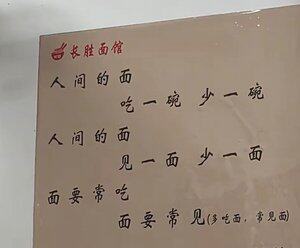 长胜面馆
人间的面
吃一碗 少一碗
人间的面
见一面 少一面
面要常吃
面要常见(多吃面,常見面)